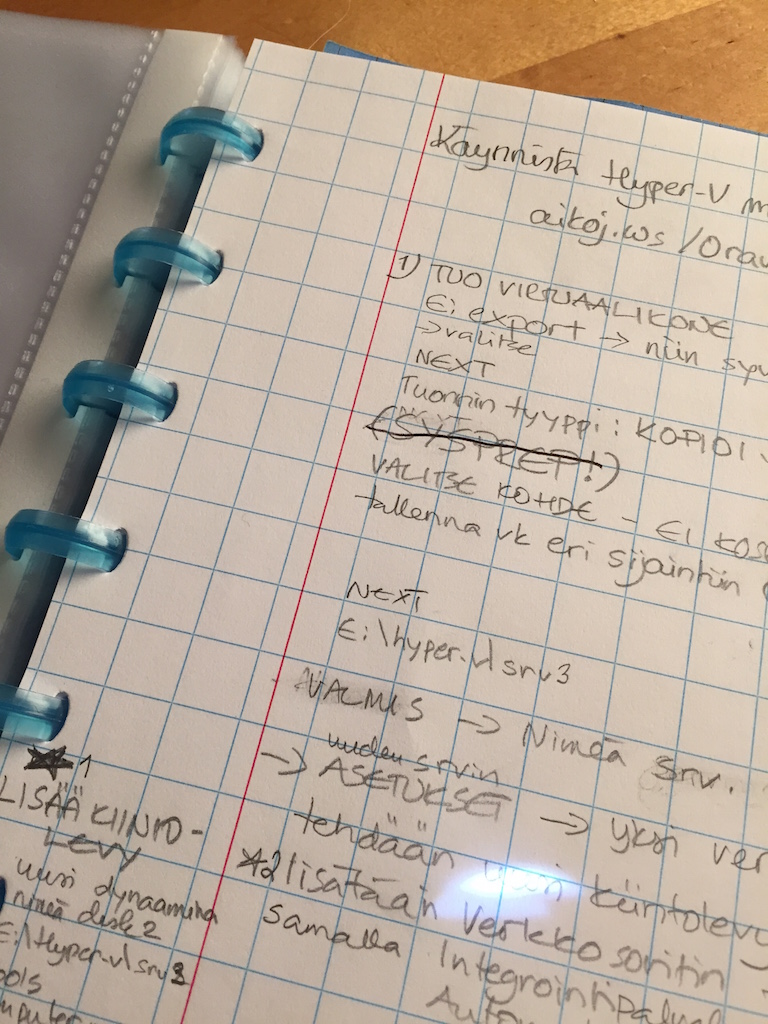 Käynnistä Hyper-V
aikoj.ws /Orav
1) TUO VIRTUAALIKONE
E: export → niin syv
→ valitse
NEXT
Tuonnin tyyppi: KOPIOI
(SYSPREP!)
VALITSE KOHDE - EI KOS
tallenna vk eri sijaintiin
NEXT
E:\hyper-v\srv3
VALMIS → Nimeä srv.
uuden srvin
→ ASETUKSET → yksi ver
tehdään uusi kiintolevy
*2 lisätään verkkosovitin
samalla Integrointipalvel
*1
LISÄÄ KIINTO-
LEVY
uusi dynaamisena
nimeä disk2
E:\Hyper-v\srv3
ools